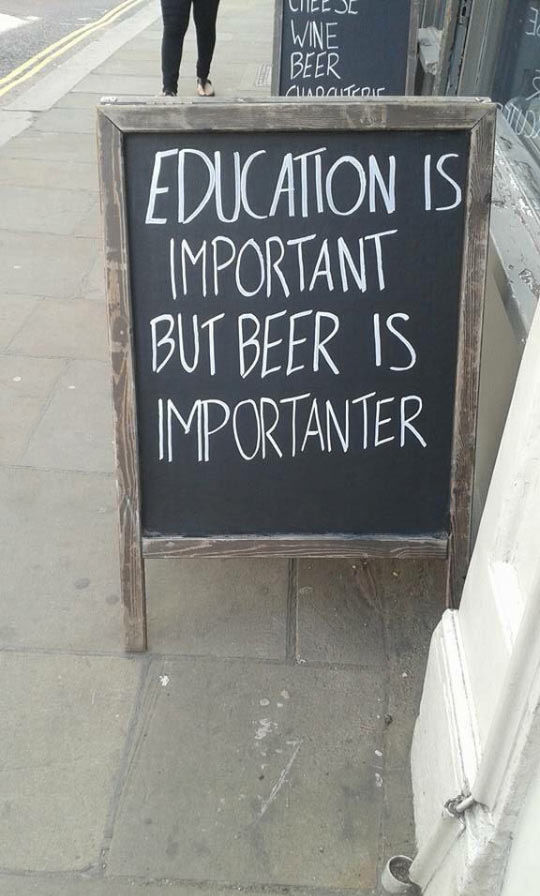 CHEESE
WINE
BEER
CHARCUTERIE
EDUCATION IS
IMPORTANT
BUT BEER IS
IMPORTANTER